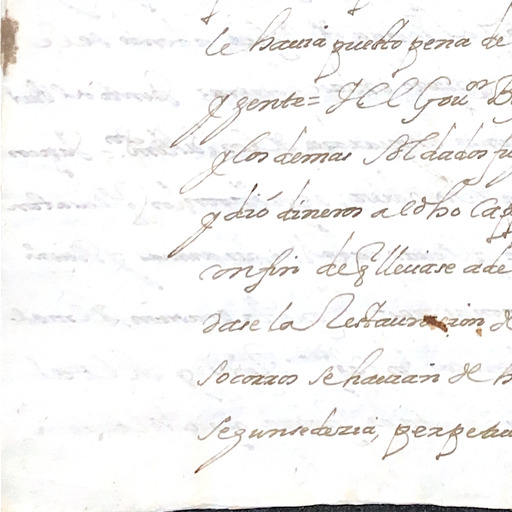 le hauia puesto pena de
q gente= q El Gouor B
q los demas Soldados fu
q dió dineros a el dho Cap
con fin de q lleuase a de
dase la Restauracion de
socorros se hauian de h
segun se dezia, perpetua